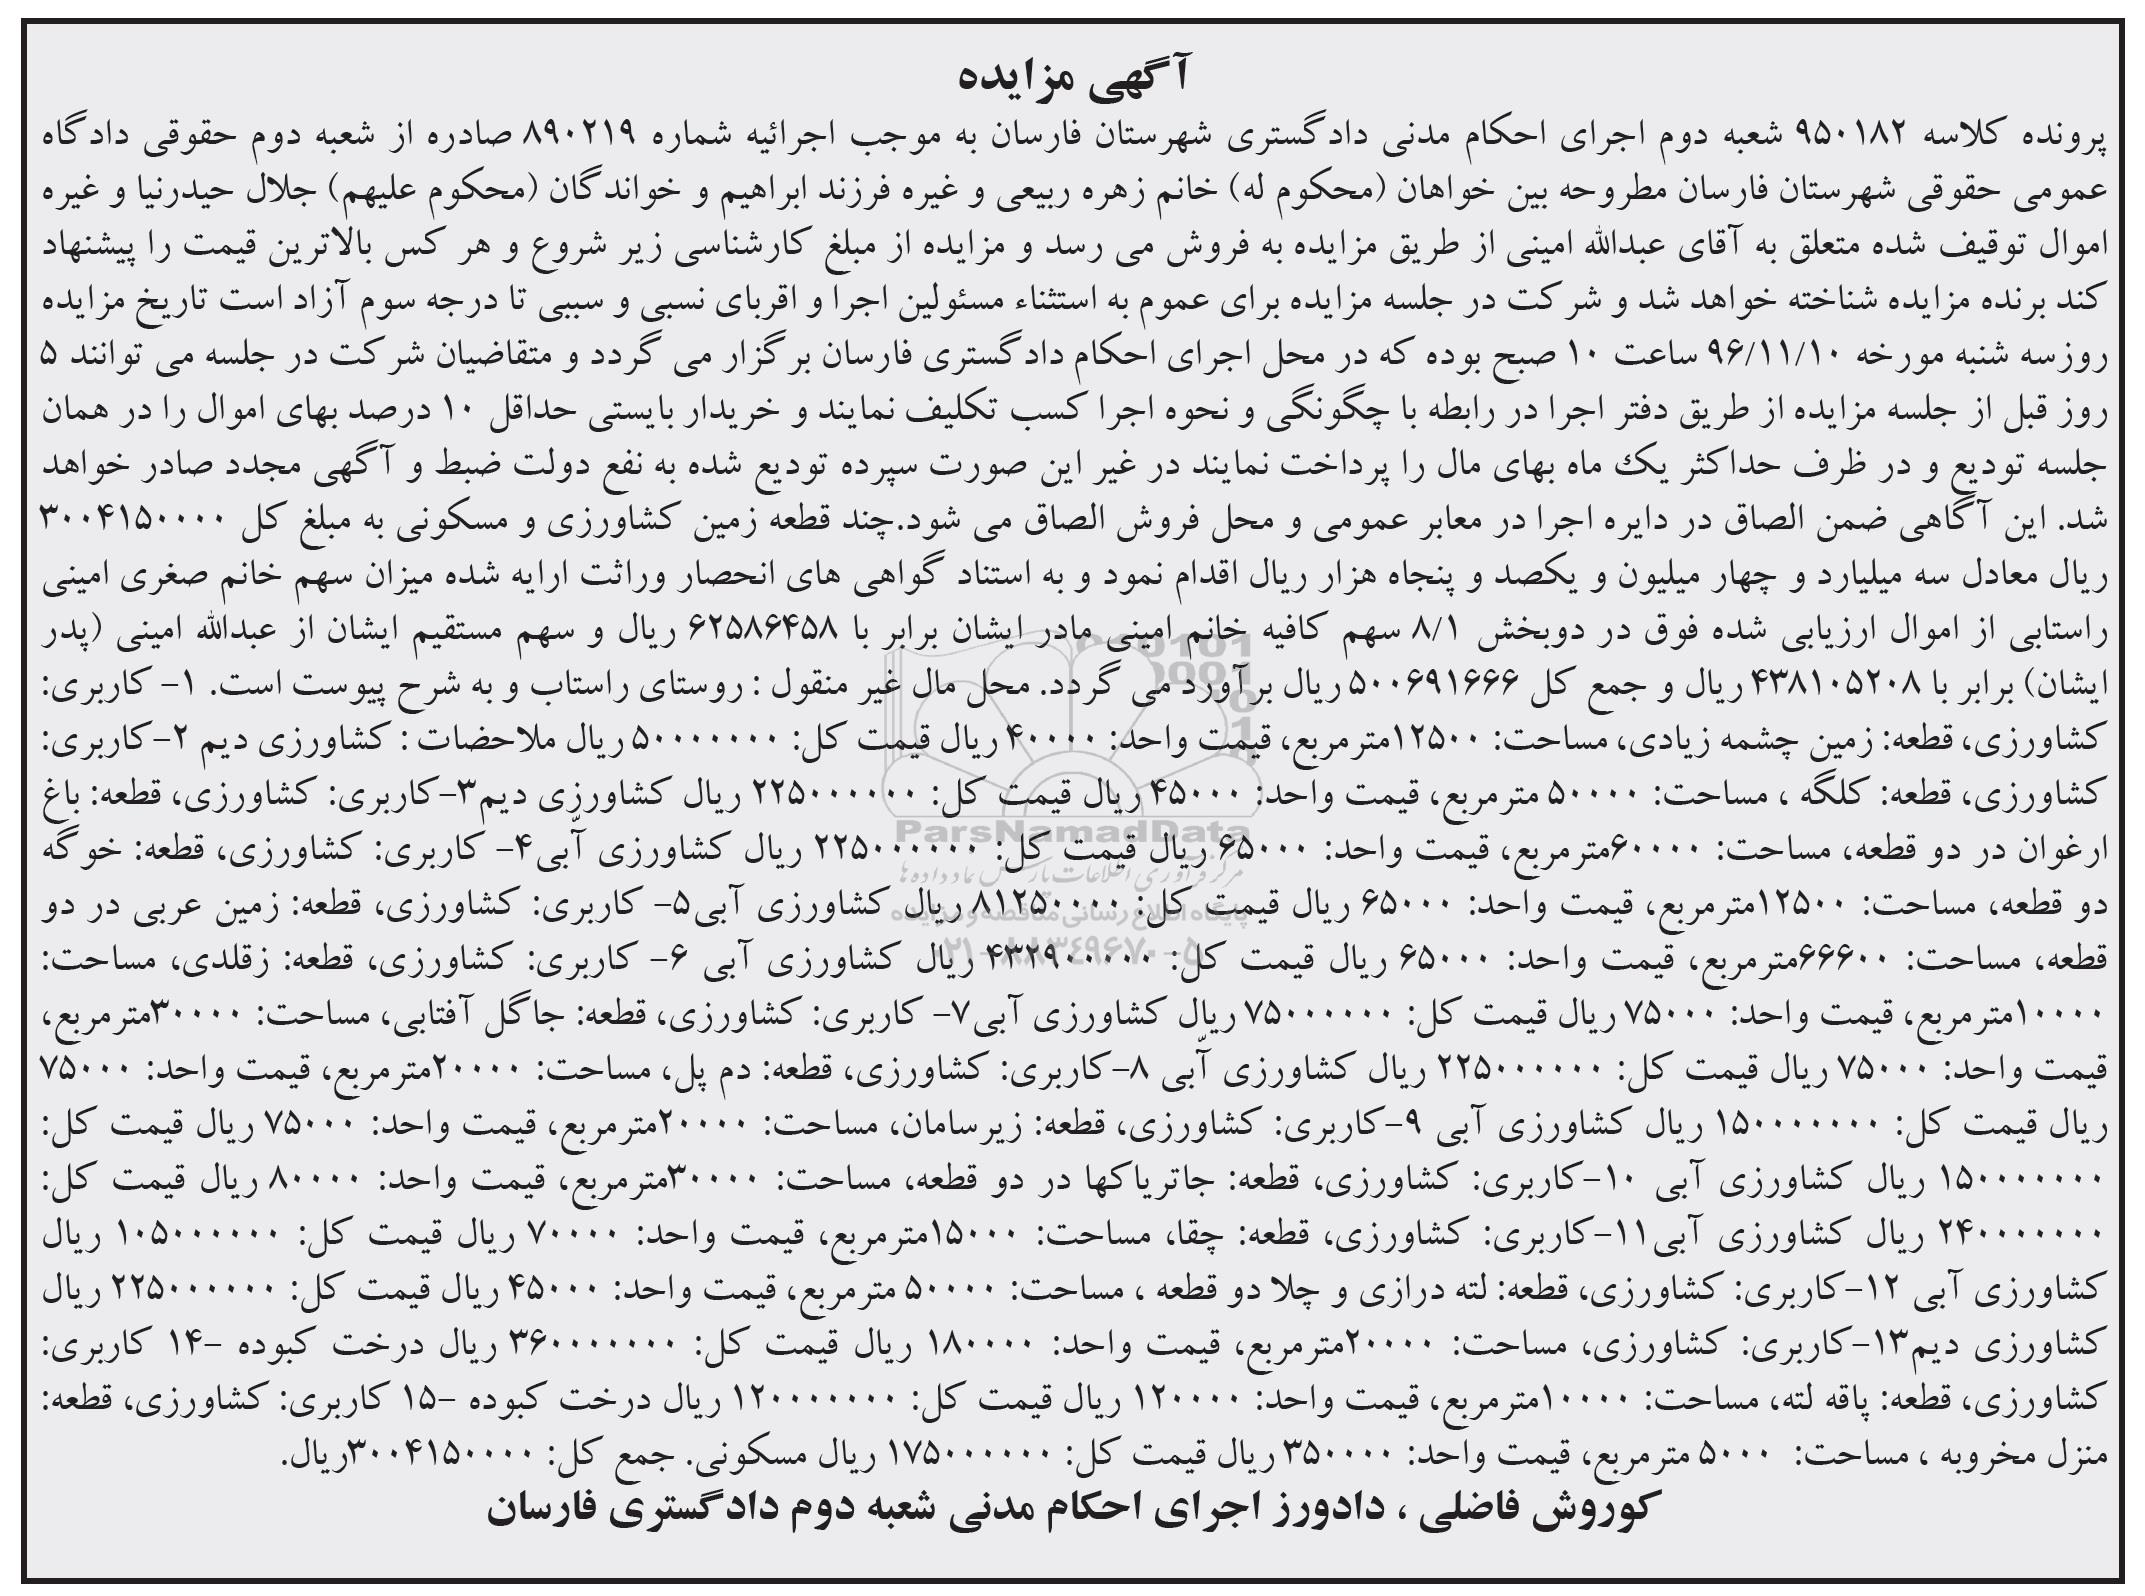 آگهی مزایده
پرونده کلاسه ۹۵۰۱۸۲ شعبه دوم اجرای احکام مدنی دادگستری شهرستان فارسان به موجب اجرائیه شماره ۸۹۰۲۱۹ صادره از شعبه دوم حقوقی دادگاه
عمومی حقوقی شهرستان فارسان مطروحه بین خواهان (محکوم له) خانم زهره ربیعی و غیره فرزند ابراهیم و خواندگان (محکوم علیهم) جلال حیدرنیا و غیره
اموال توقیف شده متعلق به آقای عبدالله امینی از طریق مزایده به فروش می رسد و مزایده از مبلغ کارشناسی زیر شروع و هر کس بالاترین قیمت را پیشنهاد
کند برنده مزایده شناخته خواهد شد و شرکت در جلسه مزایده برای عموم به استثناء مسئولین اجرا و اقربای نسبی و سببی تا درجه سوم آزاد است تاریخ مزایده
روزسه شنبه مورخه ۹۶/۱۱/۱۰ ساعت ۱۰ صبح بوده که در محل اجرای احکام دادگستری فارسان برگزار می گردد و متقاضیان شرکت در جلسه می توانند ۵
روز قبل از جلسه مزایده از طریق دفتر اجرا در رابطه با چگونگی و نحوه اجرا کسب تکلیف نمایند و خریدار بایستی حداقل ۱۰ درصد بهای اموال را در همان
جلسه تودیع و در ظرف حداکثر یک ماه بهای مال را پرداخت نمایند در غیر این صورت سپرده تودیع شده به نفع دولت ضبط و آگهی مجدد صادر خواهد
شد. این آگاهی ضمن الصاق در دایره اجرا در معابر عمومی و محل فروش الصاق می شود.چند قطعه زمین کشاورزی و مسکونی به مبلغ کل ۳۰۰۴۱۵۰۰۰۰
ریال معادل سه میلیارد و چهار میلیون و یکصد و پنجاه هزار ریال اقدام نمود و به استناد گواهی های انحصار وراثت ارایه شده میزان سهم خانم صغری امینی
راستابی از اموال ارزیابی شده فوق در دوبخش ۸/۱ سهم کافیه خانم امینی مادر ایشان برابر با ۶۲۵۸۶۴۵۸ ریال و سهم مستقیم ایشان از عبدالله امینی (پدر
ایشان) برابر با ۴۳۸۱۰۵۲۰۸ ریال و جمع کل ۵۰۰۶۹۱۶۶۶ ریال برآورد می گردد. محل مال غیر منقول : روستای راستاب و به شرح پیوست است. ۱- کاربری:
کشاورزی، قطعه: زمین چشمه زیادی، مساحت: ۱۲۵۰۰مترمربع، قیمت واحد: ۴۰۰۰۰ ریال قیمت کل: ۵۰۰۰۰۰۰۰ ریال ملاحضات : کشاورزی دیم ۲-کاربری:
کشاورزی، قطعه: کلگه ، مساحت: ۵۰۰۰۰ مترمربع، قیمت واحد: ۴۵۰۰۰ ریال قیمت کل: ۲۲۵۰۰۰۰۰۰ ریال کشاورزی دیم۳-کاربری: کشاورزی، قطعه: باغ
ارغوان در دو قطعه، مساحت: ۶۰۰۰۰مترمربع، قیمت واحد: ۶۵۰۰۰ ریال قیمت کل: ۲۲۵۰۰۰۰۰۰ ریال کشاورزی آبی۴- کاربری: کشاورزی، قطعه: خوگه
دو قطعه، مساحت: ۱۲۵۰۰مترمربع، قیمت واحد: ۶۵۰۰۰ ریال قیمت کل: ۸۱۲۵۰۰۰۰ ریال کشاورزی آبی۵- کاربری: کشاورزی، قطعه: زمین عربی در دو
قطعه، مساحت: ۶۶۶۰۰مترمربع، قیمت واحد: ۶۵۰۰۰ ریال قیمت کل: ۴۳۲۹۰۰۰۰۰ ریال کشاورزی آبی ۶- کاربری: کشاورزی، قطعه: زقلدی، مساحت:
۱۰۰۰۰مترمربع، قیمت واحد: ۷۵۰۰۰ ریال قیمت کل: ۷۵۰۰۰۰۰۰ ریال کشاورزی آبی۷- کاربری: کشاورزی، قطعه: جاگل آفتابی، مساحت: ۳۰۰۰۰مترمربع،
قیمت واحد: ۷۵۰۰۰ ریال قیمت کل: ۲۲۵۰۰۰۰۰۰ ریال کشاورزی آبی ۸-کاربری: کشاورزی، قطعه: دم پل، مساحت: ۲۰۰۰۰مترمربع، قیمت واحد: ۷۵۰۰۰
ریال قیمت کل: ۱۵۰۰۰۰۰۰۰ ریال کشاورزی آبی ۹-کاربری: کشاورزی، قطعه: زیرسامان، مساحت: ۲۰۰۰۰مترمربع، قیمت واحد: ۷۵۰۰۰ ریال قیمت کل:
۱۵۰۰۰۰۰۰۰ ریال کشاورزی آبی ۱۰-کاربری: کشاورزی، قطعه: جاتریاکها در دو قطعه، مساحت: ۳۰۰۰۰مترمربع، قیمت واحد: ۸۰۰۰۰ ریال قیمت کل:
۲۴۰۰۰۰۰۰۰ ریال کشاورزی آبی۱۱-کاربری: کشاورزی، قطعه: چقا، مساحت: ۱۵۰۰۰مترمربع، قیمت واحد: ۷۰۰۰۰ ریال قیمت کل: ۱۰۵۰۰۰۰۰۰ ریال
کشاورزی آبی ۱۲-کاربری: کشاورزی، قطعه: لته درازی و چلا دو قطعه ، مساحت: ۵۰۰۰۰ مترمربع، قیمت واحد: ۴۵۰۰۰ ریال قیمت کل: ۲۲۵۰۰۰۰۰۰ ریال
کشاورزی دیم۱۳-کاربری: کشاورزی، مساحت: ۲۰۰۰۰مترمربع، قیمت واحد: ۱۸۰۰۰۰ ریال قیمت کل: ۳۶۰۰۰۰۰۰۰ ریال درخت کبوده -۱۴ کاربری:
کشاورزی، قطعه: پاقه لته، مساحت: ۱۰۰۰۰مترمربع، قیمت واحد: ۱۲۰۰۰۰ ریال قیمت کل: ۱۲۰۰۰۰۰۰۰ ریال درخت کبوده -۱۵ کاربری: کشاورزی، قطعه:
منزل مخروبه ، مساحت: ۵۰۰۰ مترمربع، قیمت واحد: ۳۵۰۰۰۰ ریال قیمت کل: ۱۷۵۰۰۰۰۰۰ ریال مسکونی. جمع کل: ۳۰۰۴۱۵۰۰۰۰ریال.
کوروش فاضلی ، دادورز اجرای احکام مدنی شعبه دوم دادگستری فارسان
ParsNamadData
پایگاه اطلاع رسانی مناقصه و مزایده